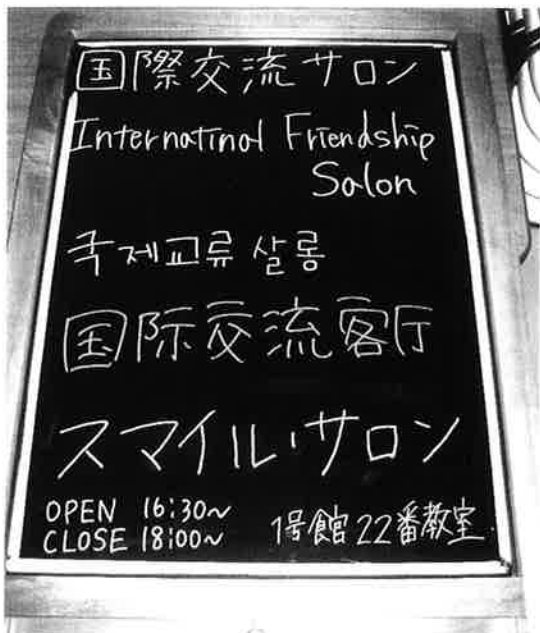 国際交流サロン
Internatinal Friendship
Salon
국제교류 살롱
国际交流客厅
スマイル・サロン
OPEN 16:30~
CLOSE 18:00~
1号館22番教室